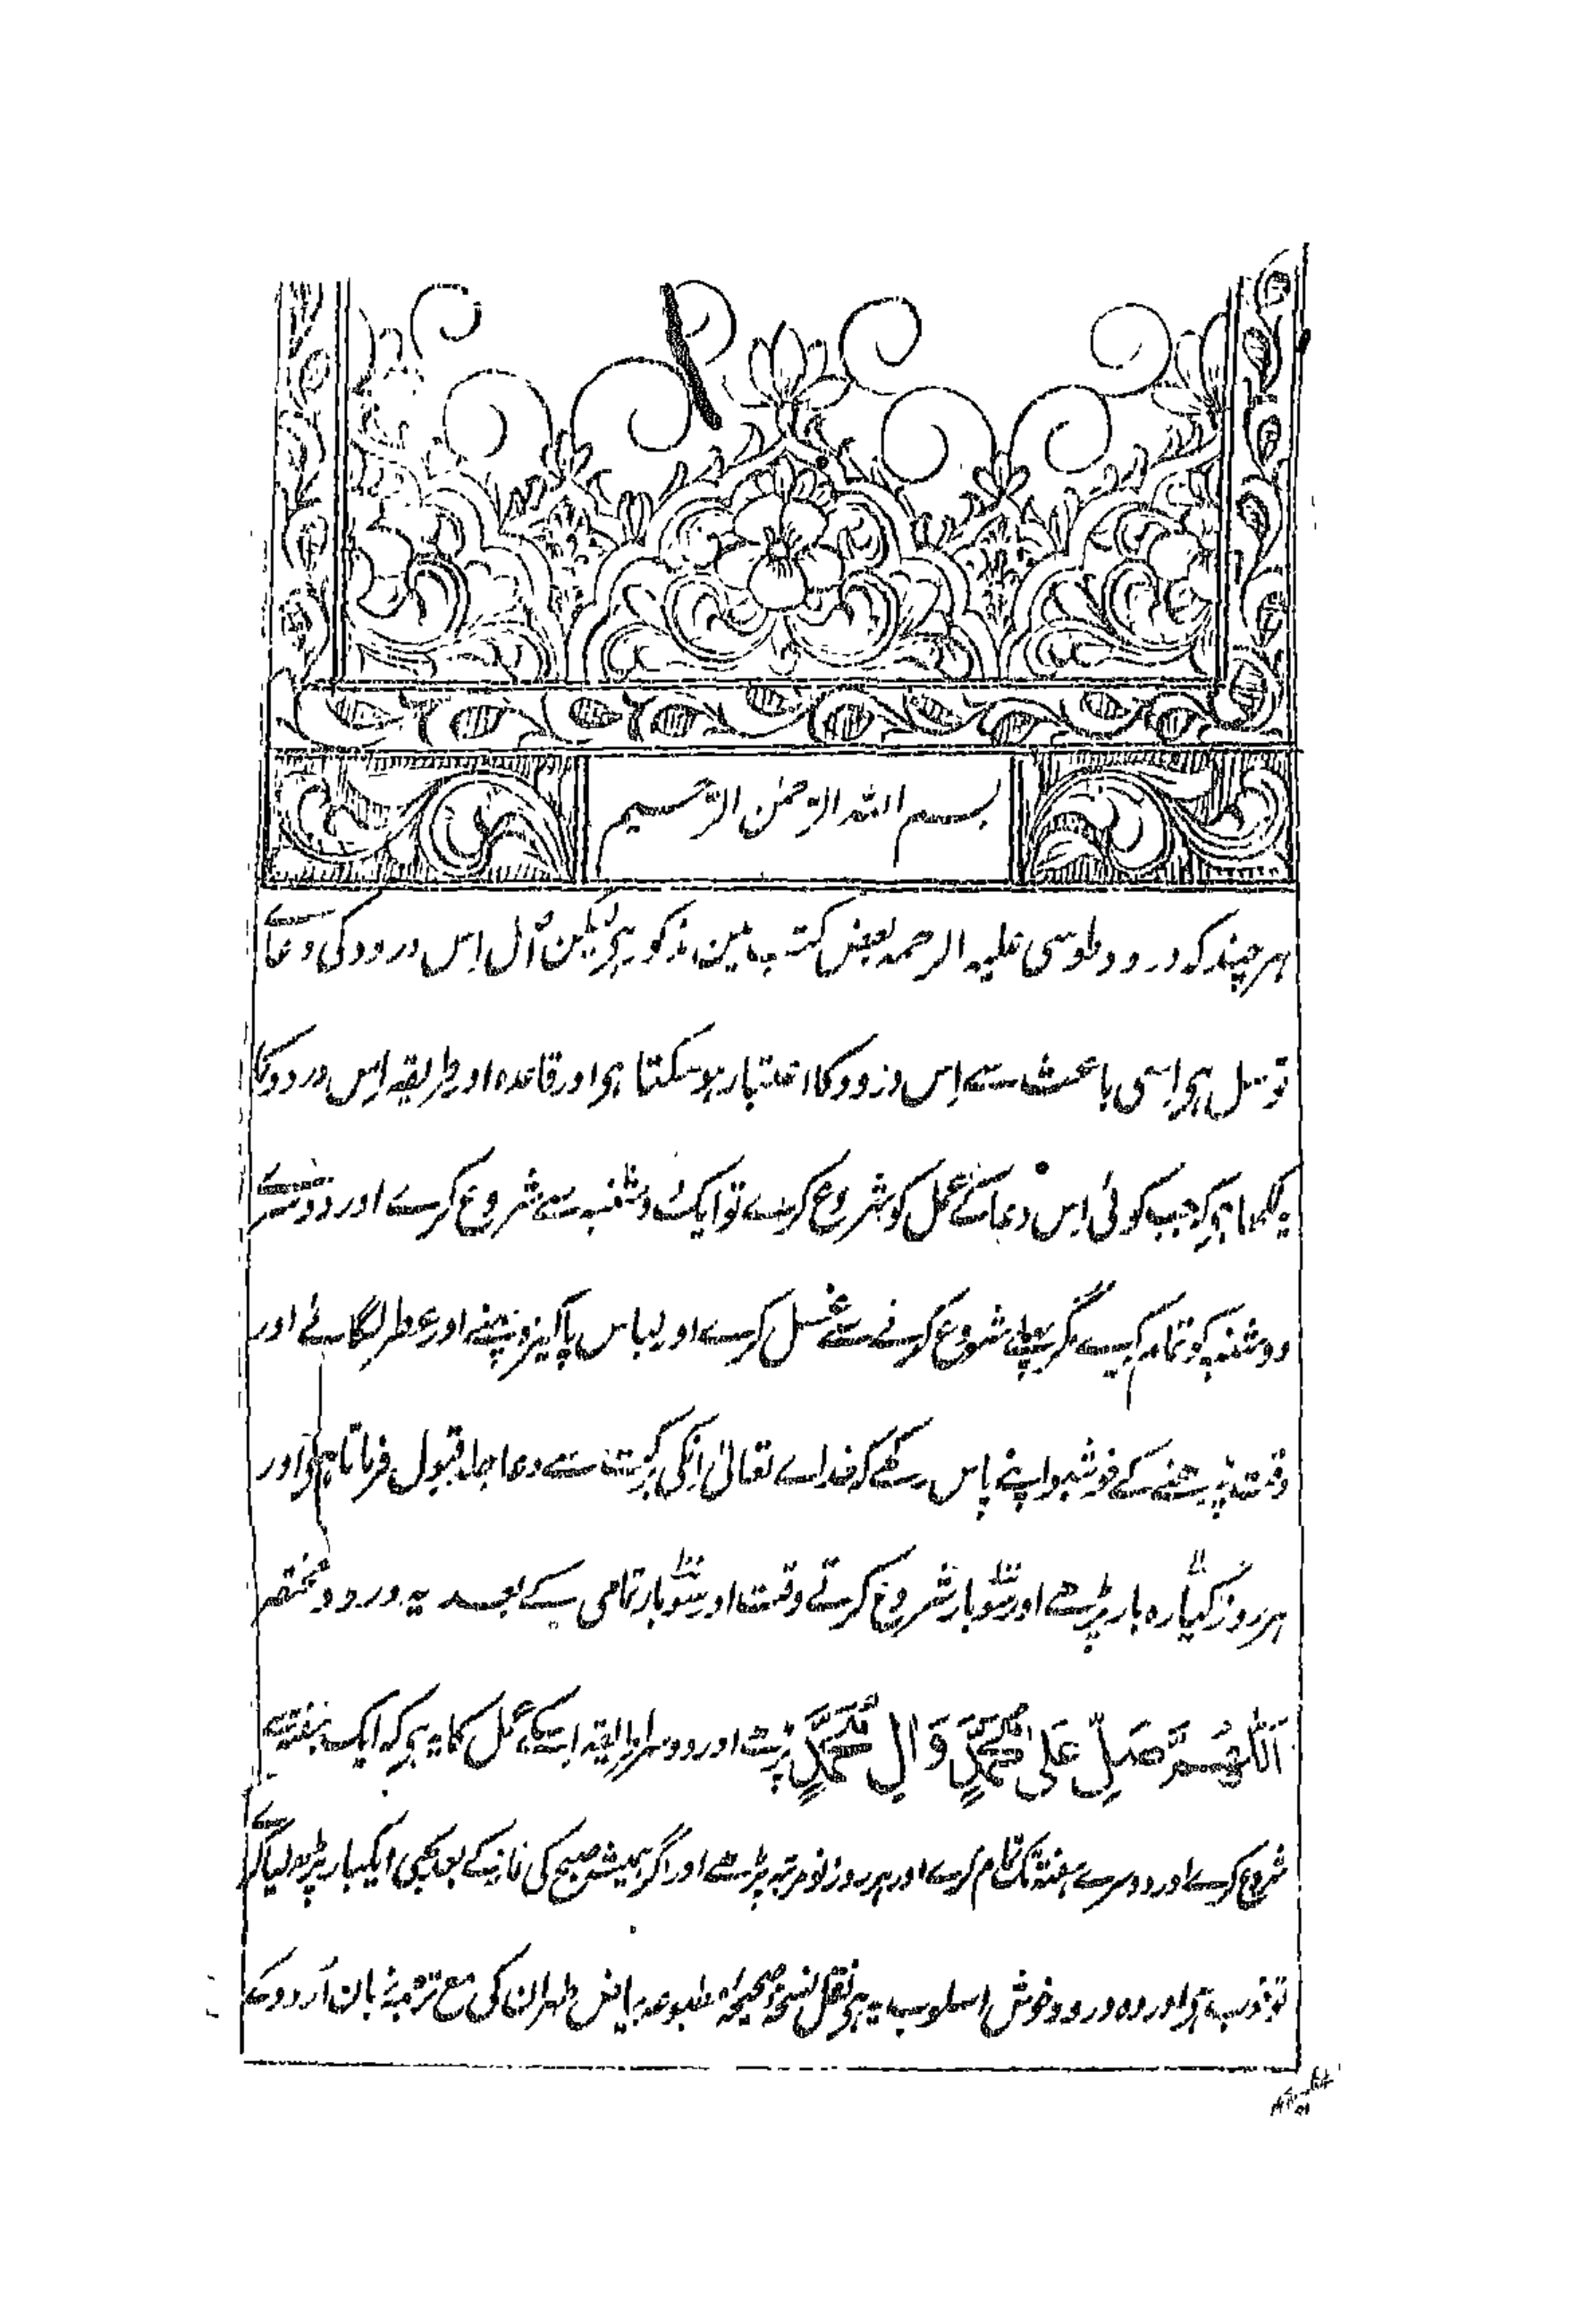 بسم اللہ الرحمٰن الرحیم
ہر چند کہ درود طوسی علیہ الرحمہ بعض کتب مین مذکور ہی لیکن اس درود کی دعاے
توسل ہی اسی باعث سے اس درود کا اعتبار ہو سکتا ہی اور قاعدہ اور طریقہ اس درود کا
یہ لکھا ہی کہ جب کوئی اِس دعا کے عمل کو شروع کرے تو ایک دوشنبہ سے شروع کرے اور دوسرے
دوشنبہ کو تمام کرے مگر پہلے شروع کرنے سے غسل کرے اور لباس پاکیزہ پہنے اور عطر لگائے اور
وقت پڑھنے کے خوشبو اپنے پاس رکھے کہ خداے تعالیٰ انکی برکت سے دعا جلد قبول فرماتا ہی اور
ہر روز گیارہ بار پڑھے اور سَو بار شروع کرتے وقت اور سَو بار تمامی کے بعد یہ درود مختصر
اَللّٰهُمَّ صَلِّ عَلٰی مُحَمَّدٍ وَّاٰلِ مُحَمَّدٍ پڑھے اور دوسرا طریقہ اسکے عمل کا یہ ہی کہ ایک ہفتے سے
شروع کرے اور دوسرے ہفتہ تک تمام کرے اور ہر روز نو مرتبہ پڑھے اور اگر ہمیشہ صبح کی نماز کے بعد بھی ایکبار پڑھ لیا کرے
تو خوب ہی اور وہ درود خوش اسلوب یہ ہی نقل نسخہ صحیحہ مطبوعہ طہران کی مع ترجمہ زبان اُردو کے